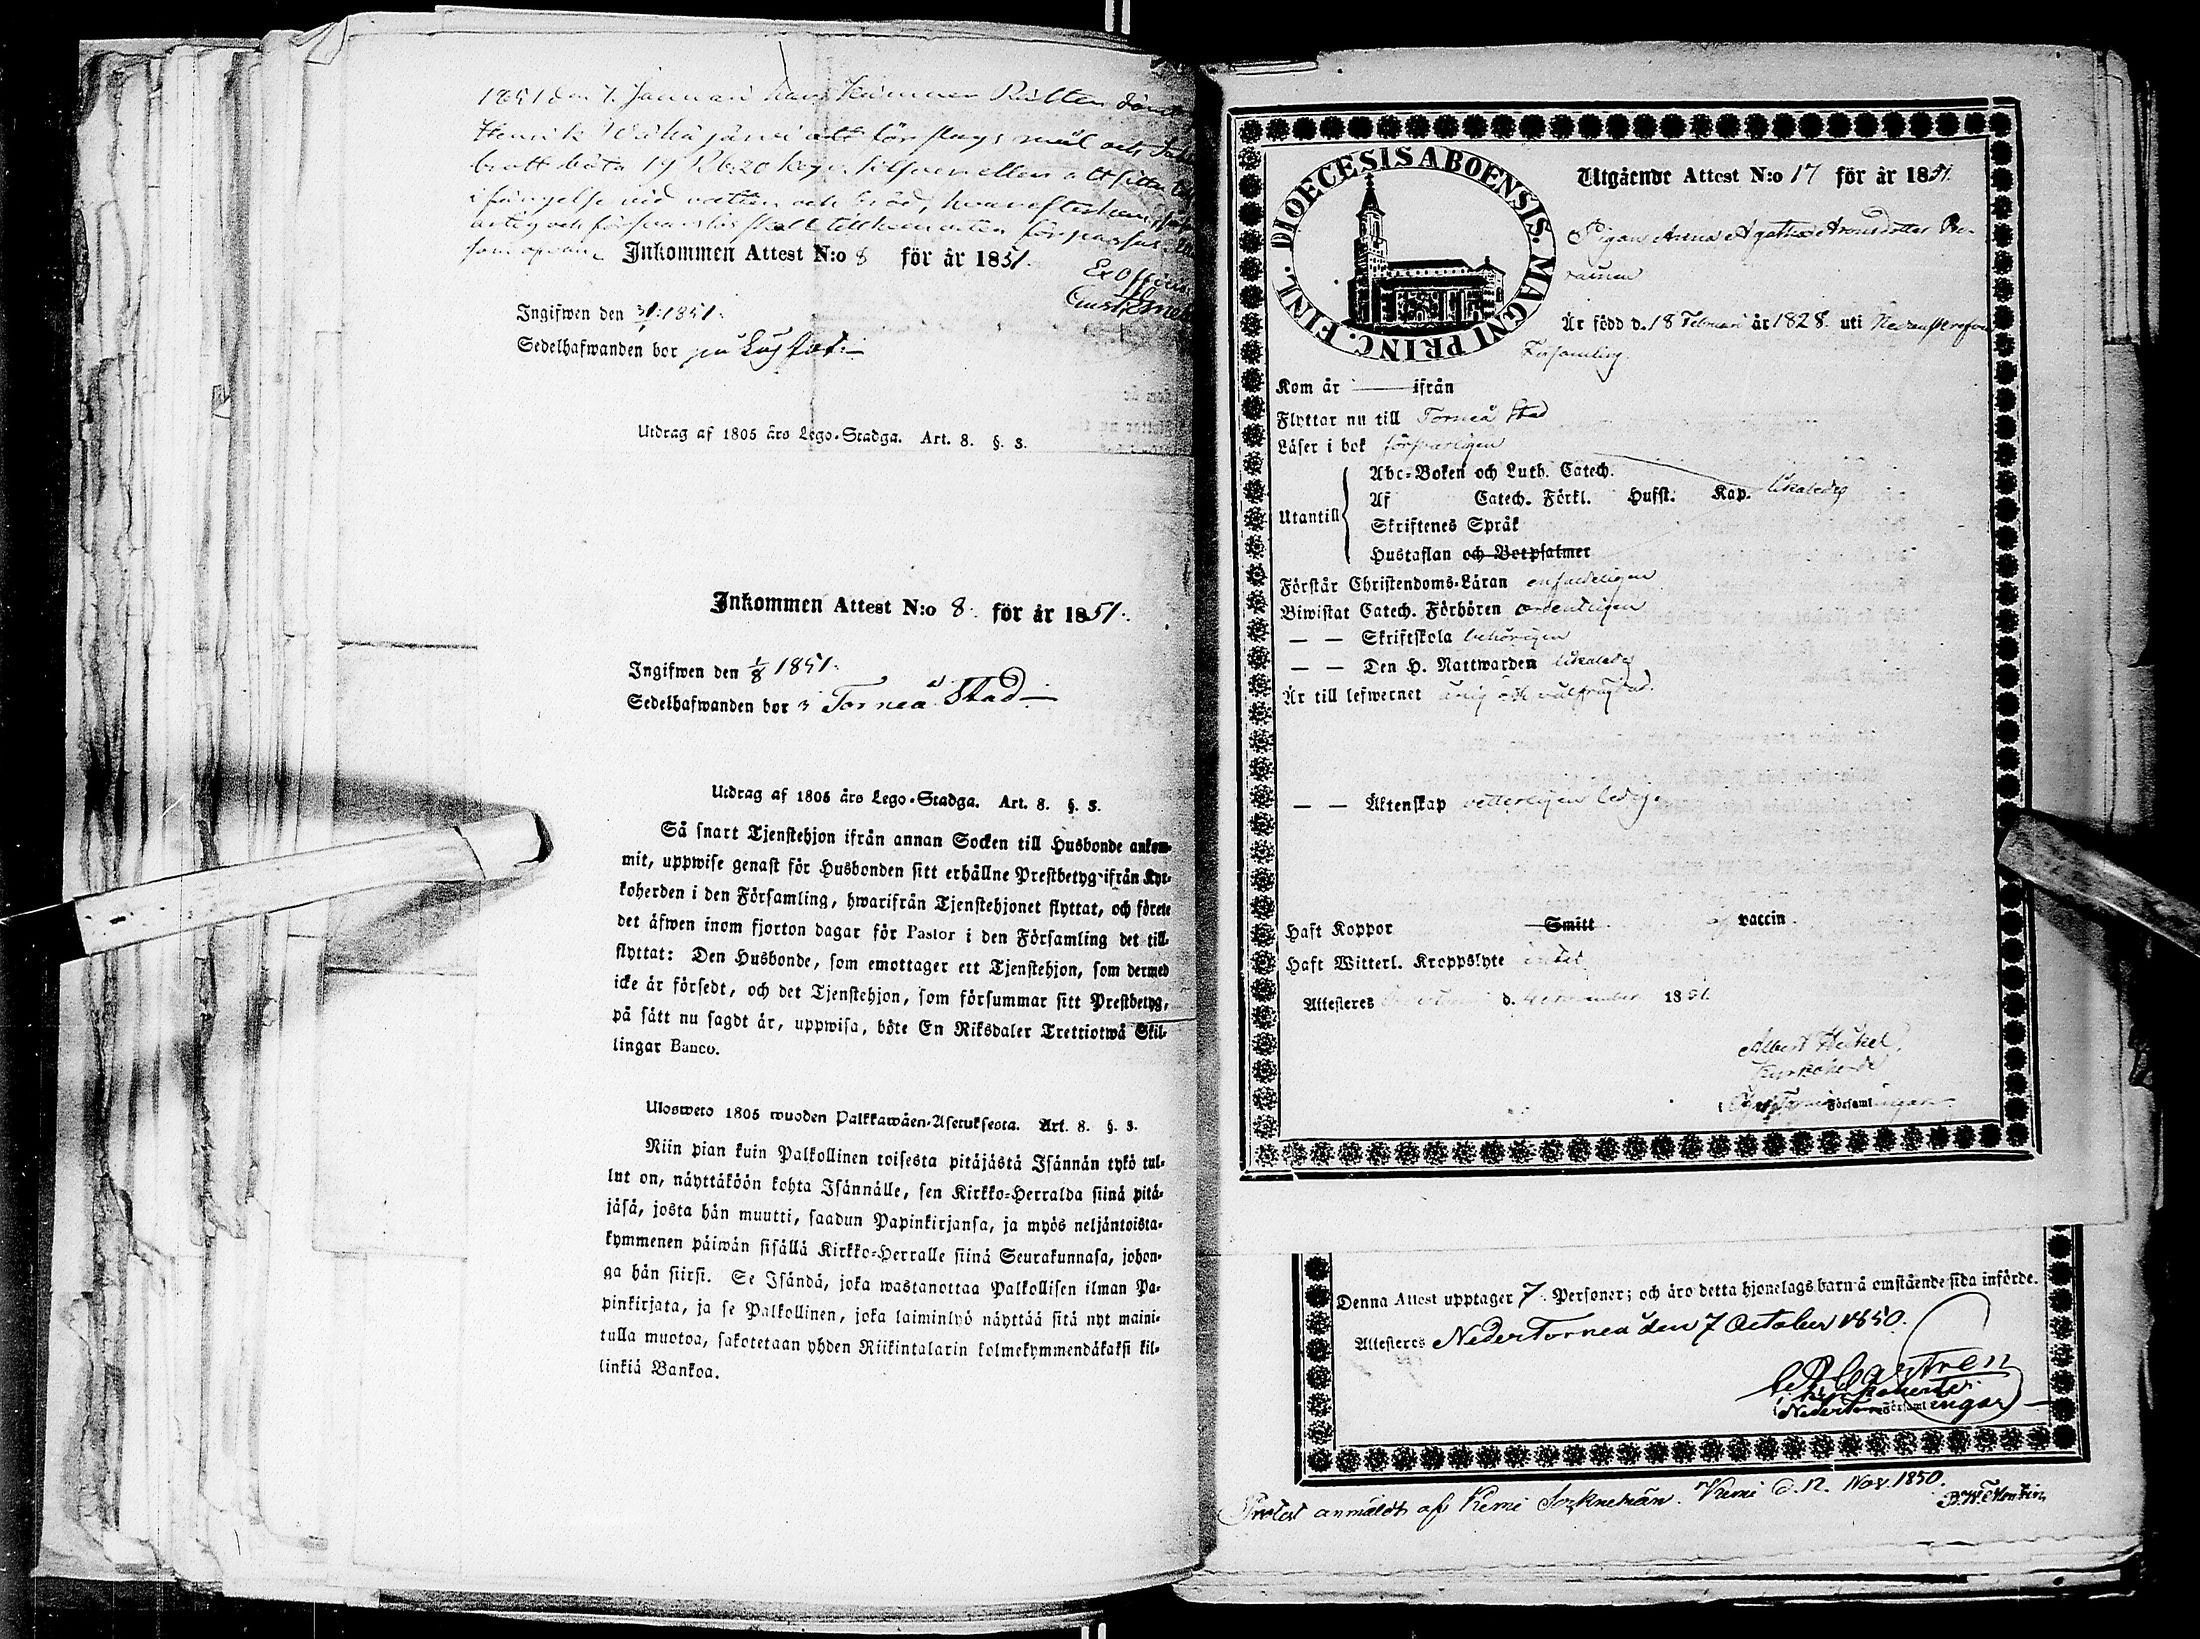 1851 den 7. Januari
Henrik
bratt böta 19 Rb: 20 kop. silfver eller att sitta
i fängelse vid vatten och bröd, hvarefter han
Inkommen Attest N:o 8 för år 1851.
Ex Officio
Ingifwen den 31/1 1851.
Sedelhafwanden bor på
Utdrag af 1805 års Lego-Stadga. Art. 8. §. 3.
Inkommen Attest N:o 8. för år 1851.
Ingifwen den 1/8 1851.
Sedelhafwanden bor i Torneå Stad
Utdrag af 1805 års Lego-Stadga. Art. 8. §. 3.
Så snart Tjenstehjon ifrån annan Socken till Husbonde ankom-
mit, uppwise genast för Husbonden sitt erhållne Prestbetyg ifrån Kyr-
koherden i den Församling, hwarifrån Tjenstehjonet flyttat, och förete
det äfwen inom fjorton dagar för Pastor i den Församling det till-
flyttat: Den Husbonde, som emottager ett Tjenstehjon, som dermed
icke är försedt, och det Tjenstehjon, som försummar sitt Prestbetyg,
på sätt nu sagdt är, uppwisa, böte En Riksdaler Trettiotwå Skil-
lingar Banco.
Ulosweto 1805 wuoden Palkkawäen-Asetuksesta. Art. 8. §. 3.
Niin pian kuin Palkollinen toisesta pitäjästä Isännän tykö tul-
lut on, näyttäköön kohta Isännälle, sen Kirkko-Herralda siinä pitä-
jäsä, josta hän muutti, saadun Papinkirjansa, ja myös neljäntoista-
kymmenen päiwän sisällä Kirkko-Herralle siinä Seurakunnasa, johon-
ga hän siirsi. Se Isändä, joka wastanottaa Palkollisen ilman Pa-
pinkirjata, ja se Palkollinen, joka laiminlyö näyttää sitä nyt maini-
tulla muotoa, sakotetaan yhden Riikintalarin kolmekymmendäkaksi kil-
linkiä Bankoa.
DIOECESIS ABOENSIS. MAGNI PRINC. FINL.
Utgående Attest N:o 17 för år 1851.
Pigan Anna Agatha Aronsdotter
Är född d. 18 Februari år 1828. uti
Församling
Kom år — ifrån
Flyttar nu till Torneå Stad
Läser i bok försvarligen
Utantill
Abc-Boken och Luth. Catech.
Af Catech. Förkl. Husst. Kap. likaledes
Skriftenes Språk
Hustaflan och Botpsalmer
Förstår Christendoms-Läran enfaldeligen
Biwistat Catech. Förhören ordentligen
— — Skriftskola behörigen
— — Den H. Nattwarden likaledes
Är till lefwernet ärlig och välfrejdad.
— — Äktenskap vetterligen ledig
Haft Koppor Smitt vaccin
Haft Witterl. Kroppslyte intet
Attesteras d. 1851.
Albert Heikel,
Kyrkoherde
Församlingar
Denna Attest upptager 7. Personer; och äro detta hjonelags barn å omstående sida införde.
Attesteras Neder Torneå den 7 October 1850.
Castren
Kyrkoherde i
Neder Torneå Församlingar
Protest anmäldt af Kemi Socknemän. Kemi d. 12. Nov. 1850.